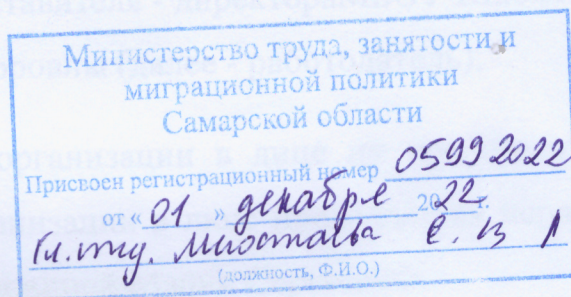 Министерство труда, занятости и
миграционной политики
Самарской области
Присвоен регистрационный номер 05992022
от « 01 » декабря 2022 г.
Е. В
(должность, Ф.И.О.)